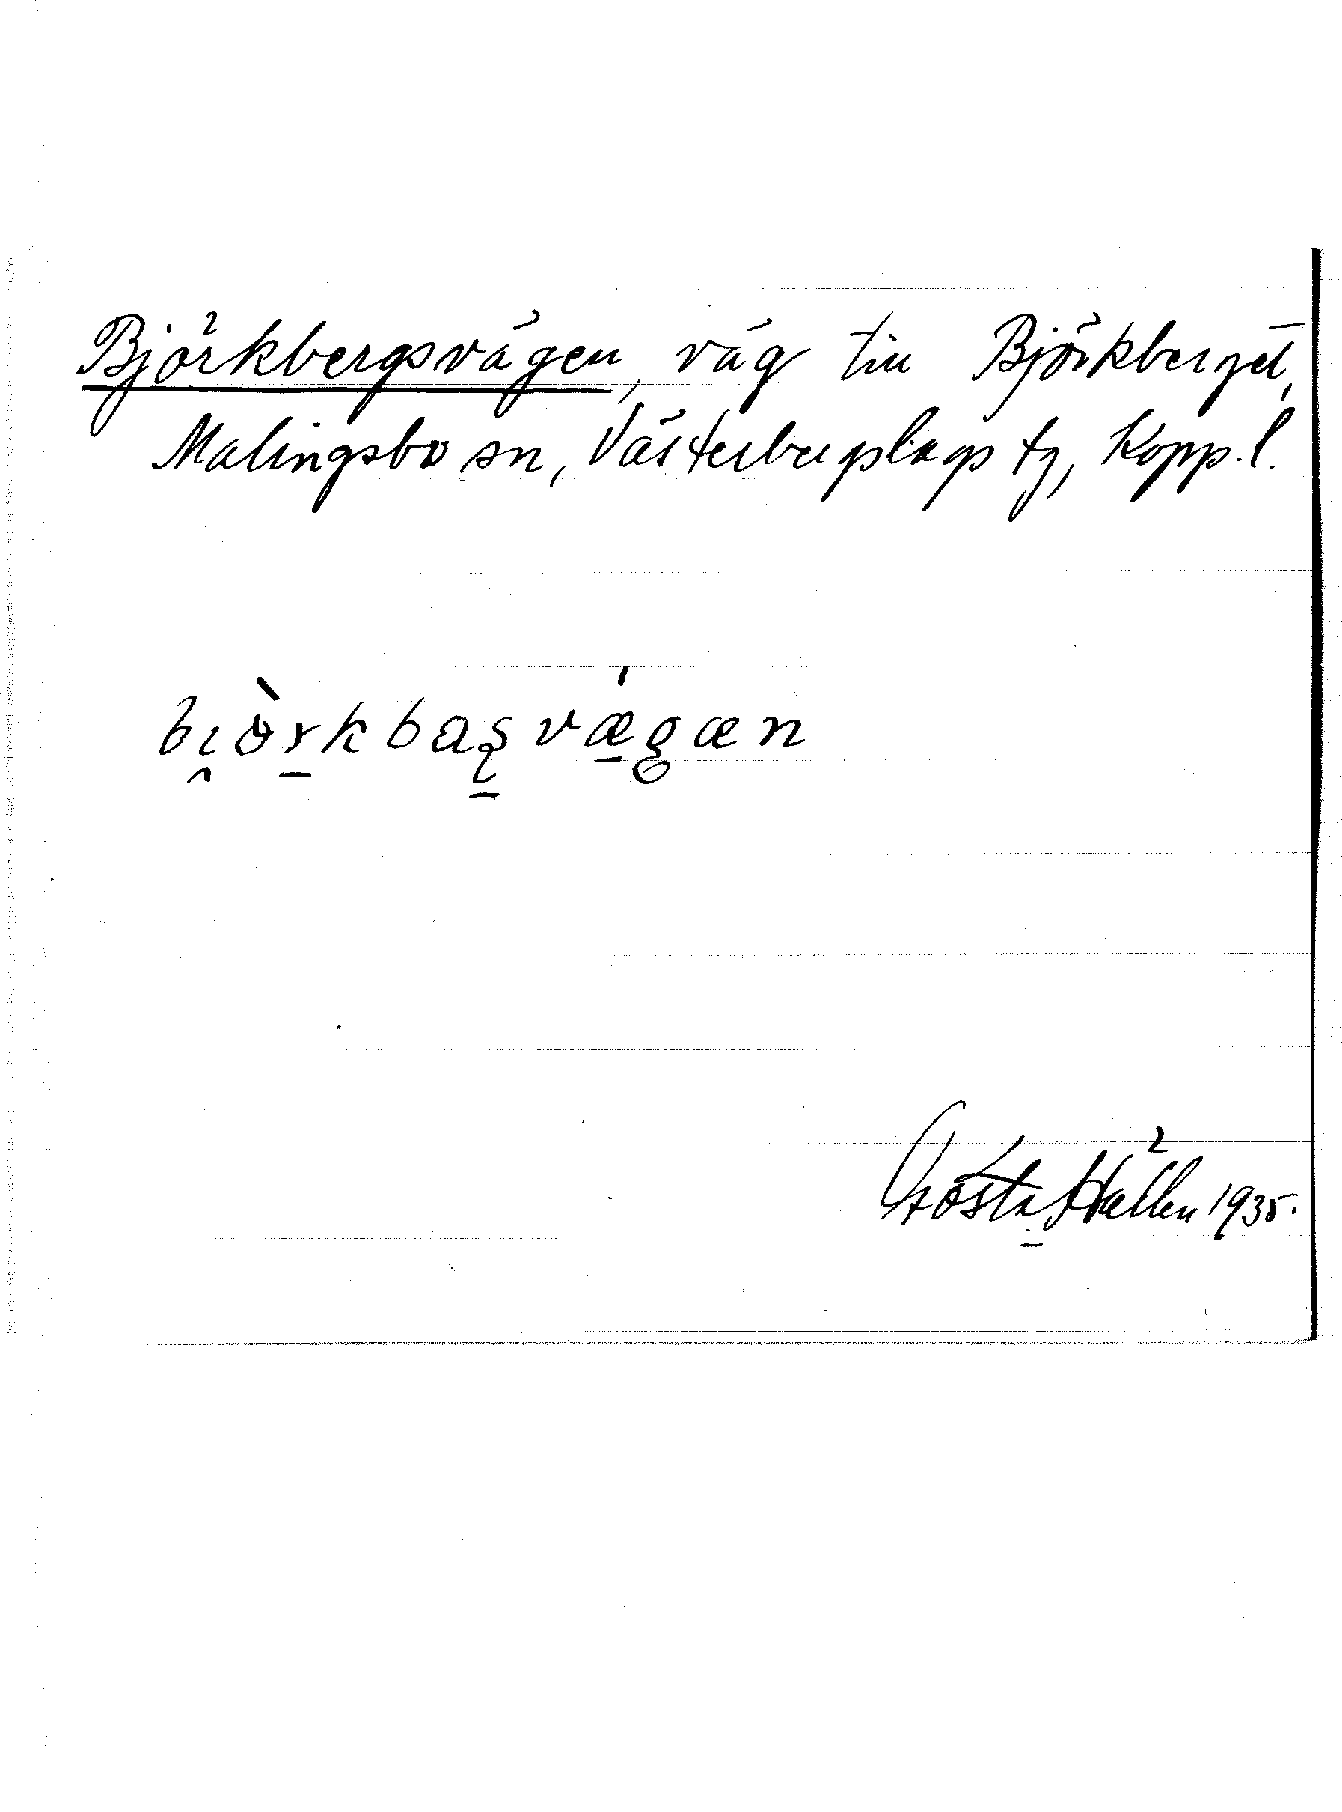 Björkbergsvägen, väg till Björkberget,
Malingsbo sn, Västerbergslags tg, Kopp. l.
bi̯ò̈r̠kbaʂ̠vǽ̠gæn
Gösta Hällen 1935.